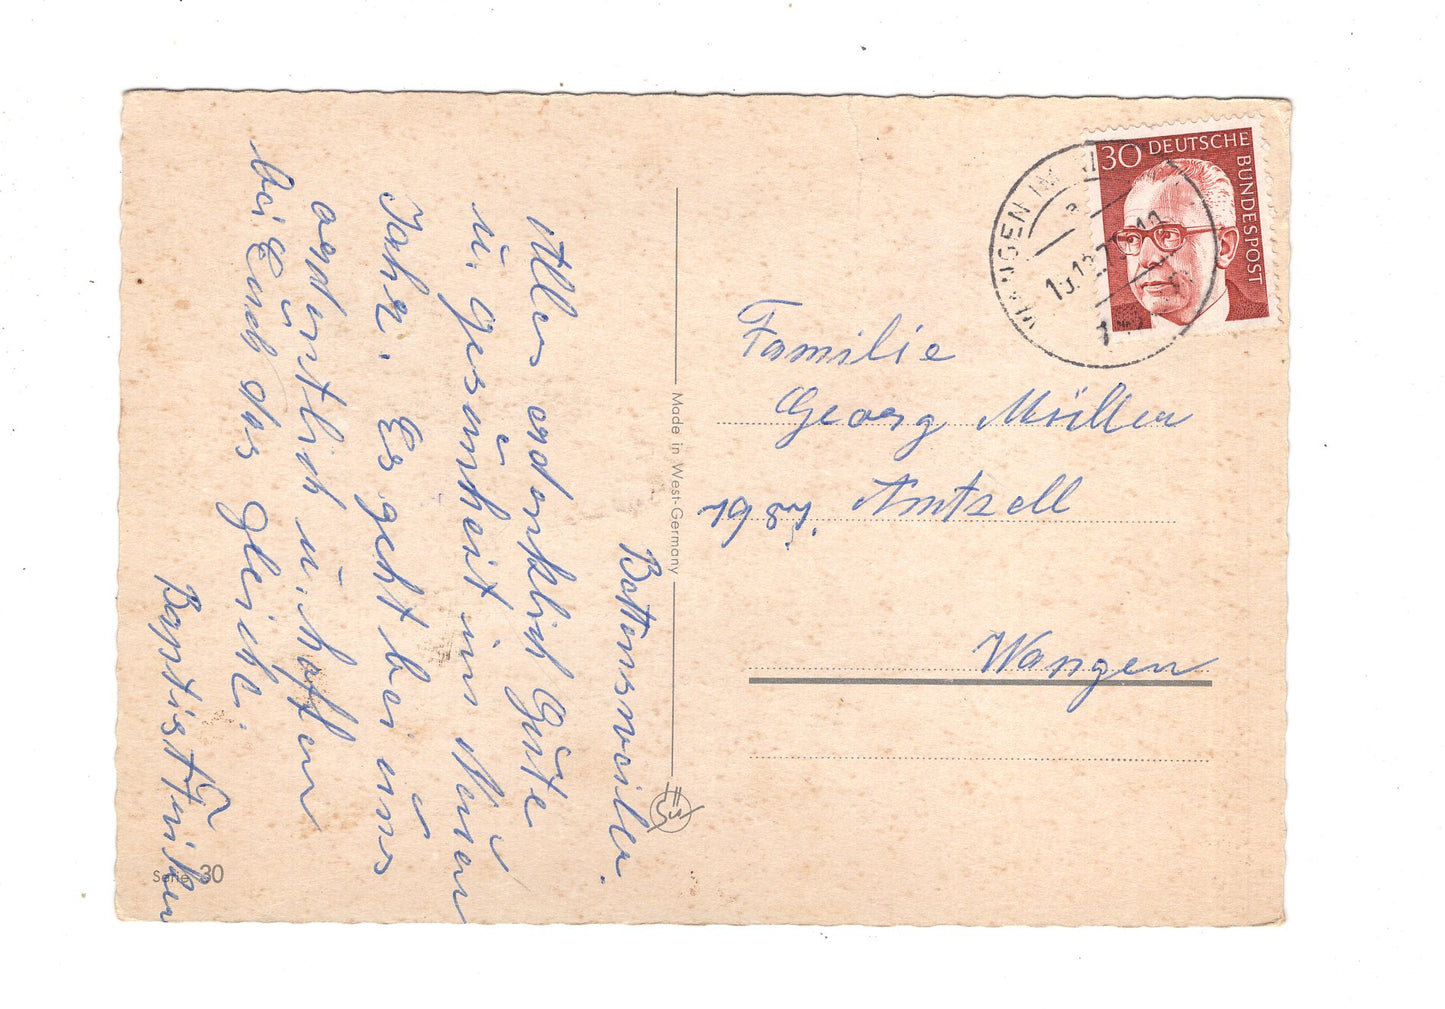 Bottensweiler.
Alles erdenklich Gute
u. gesundheit im Neuen
Jahr. Es geht bei uns
ordentlich u. hoffen
bei Euch das gleiche.
Baptist
Serie 30
Made in West-Germany
30 DEUTSCHE
BUNDESPOST
WANGEN IM
Familie
Georg Müller
Amtzell
Wangen